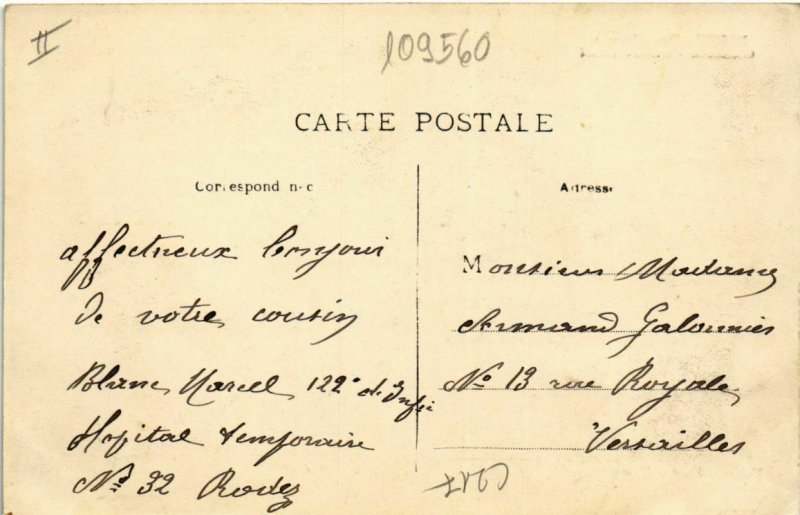 II
109560
CARTE POSTALE
Correspondance
Adresse
affectueux bonjour
de votre cousin
Blanc Marcel 122e d'Infie
Hopital temporaire
No 32 Rodez
Monsieur Madame
Armand Galonnier
No 13 rue Royale
Versailles